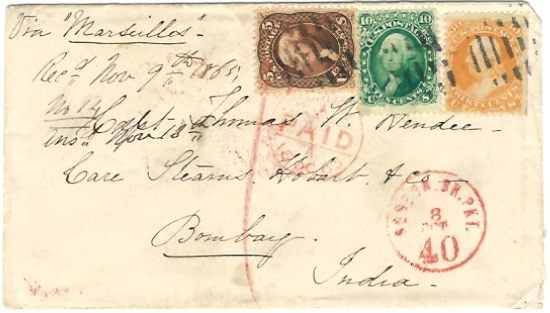 Via "Marseilles"
Recd Nov 9th 1865
No 14
Ansd Nov 18th
Capt Thomas W. Dendee
Care Stearns, Hobart & co
Bombay.
India.
5 5
U.S. POSTAGE
10 10
U.S. POSTAGE
TEN CENTS
THIRTY CENTS
PAID
BOSTON. BR. PKT.
40